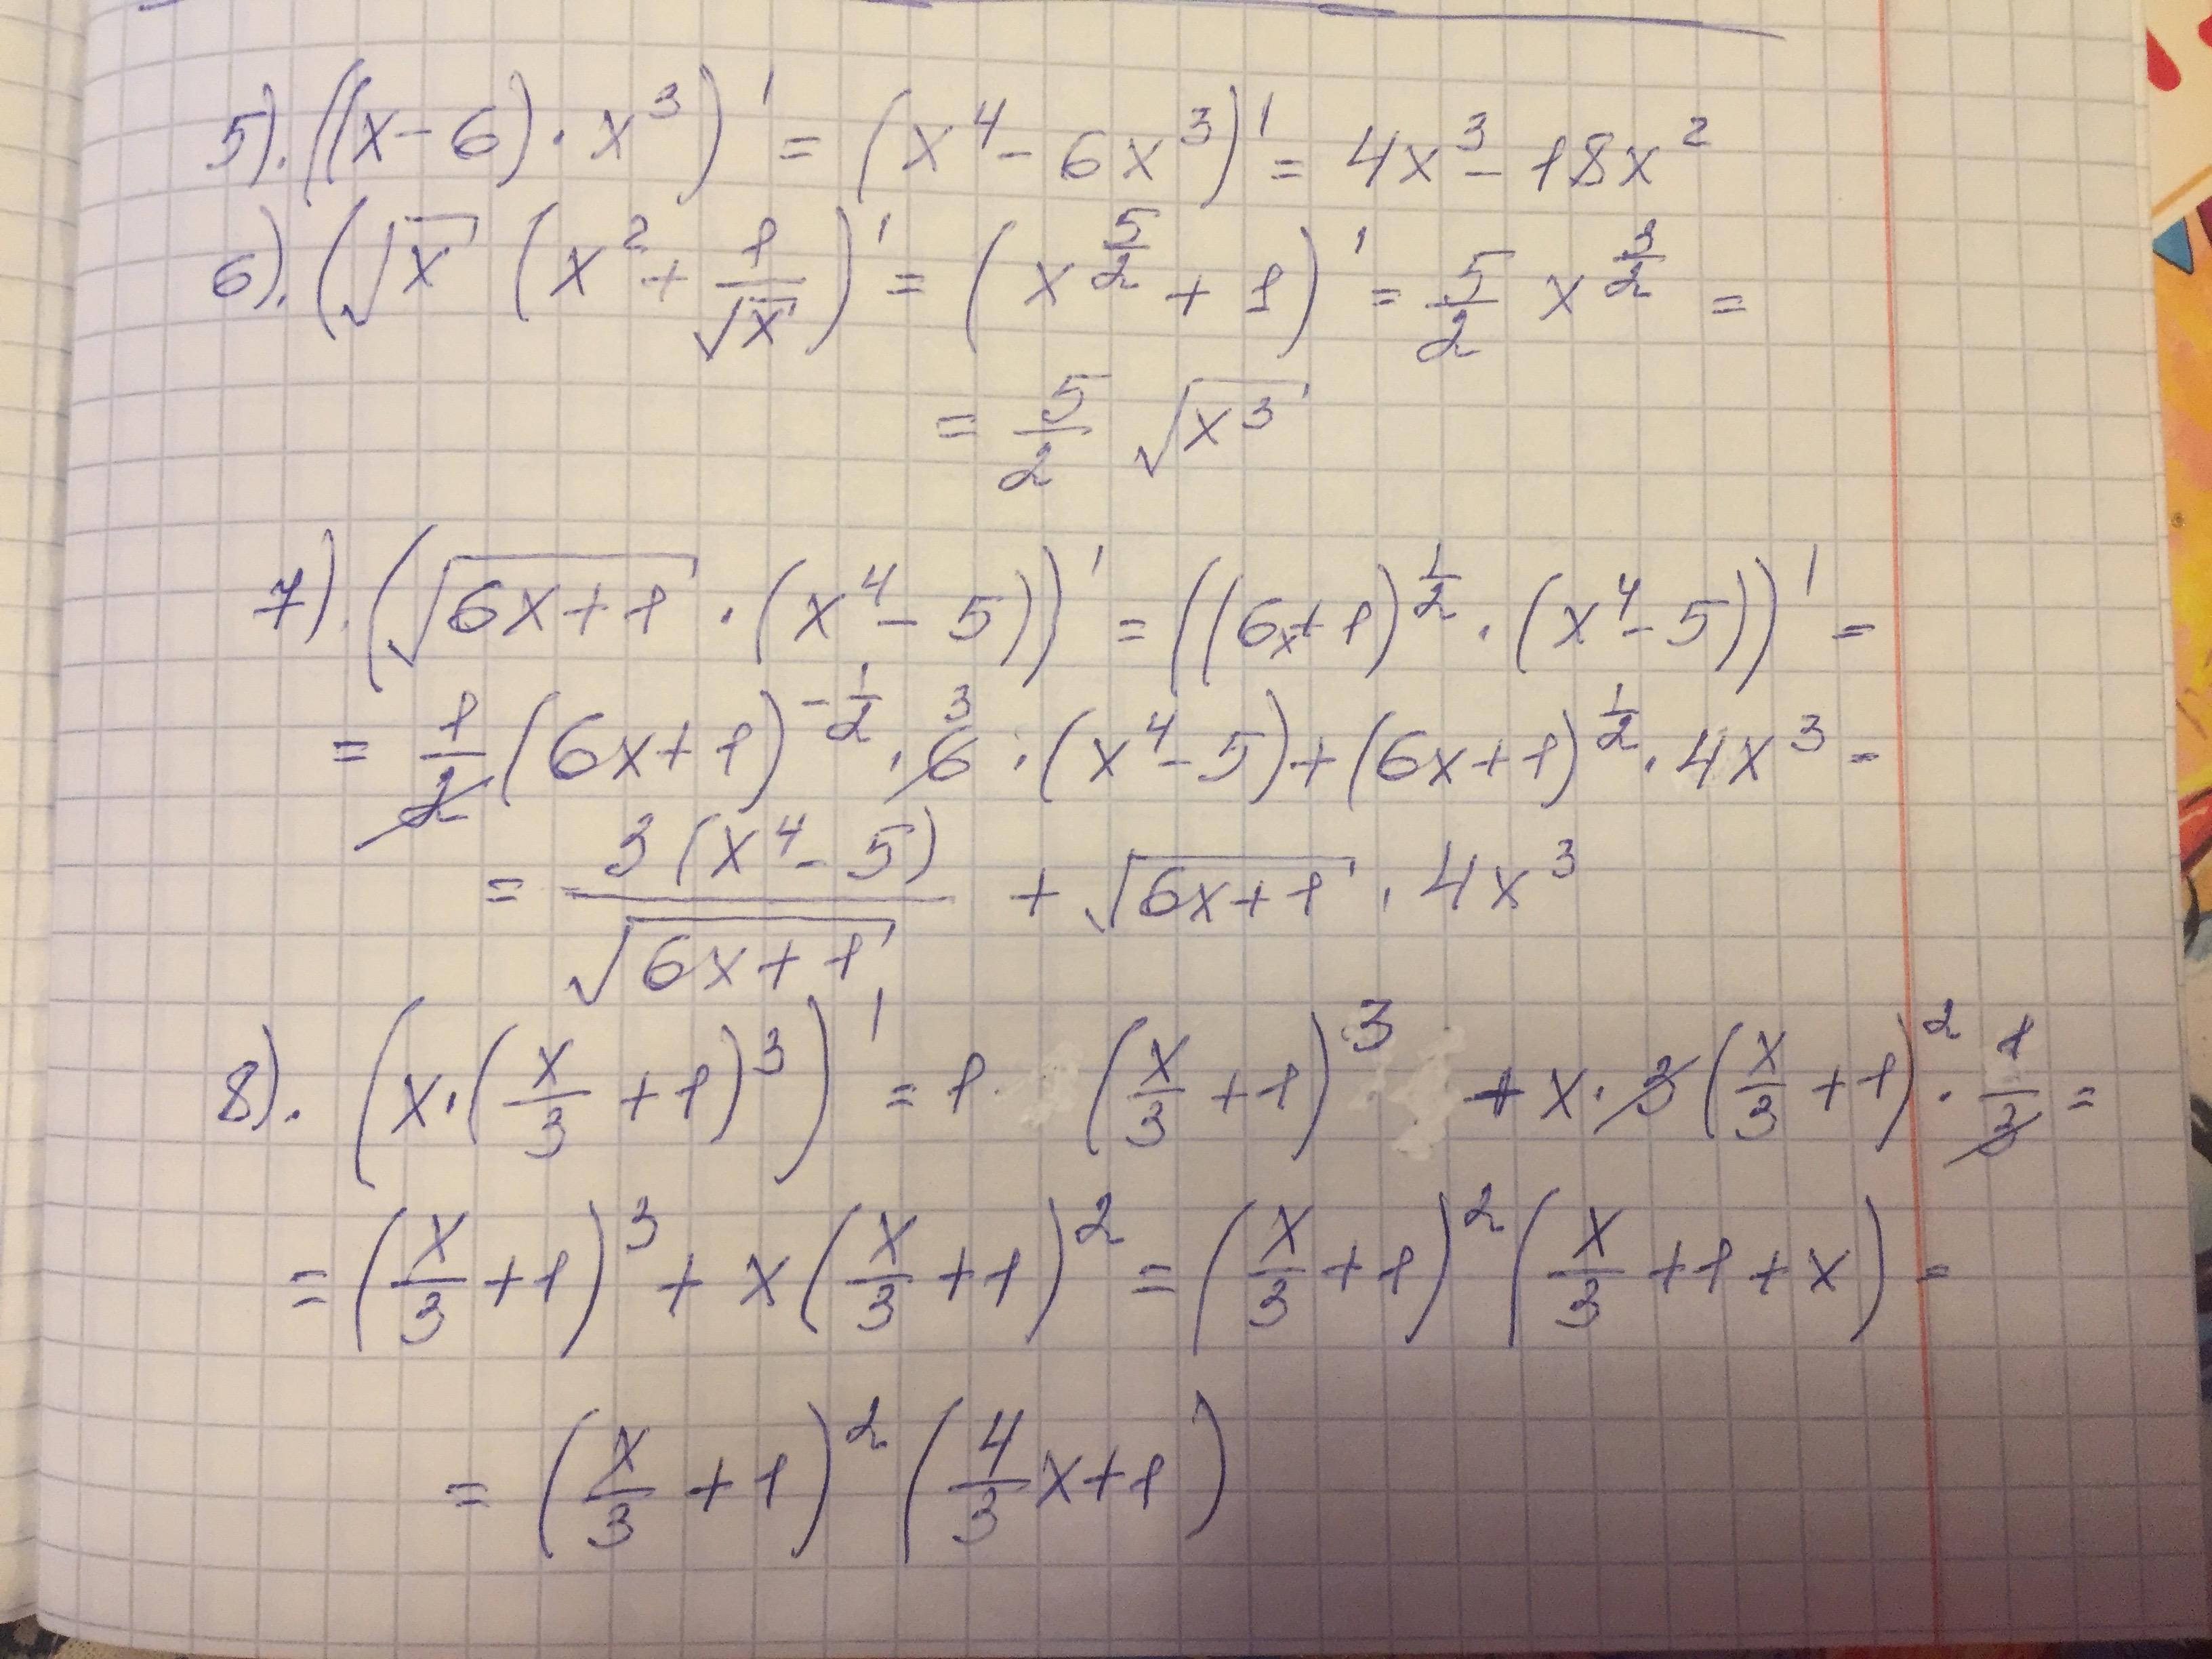 5). ((x-6)·x³)' = (x⁴ - 6x³)' = 4x³ - 18x²
6). (√x (x² + 1/√x)' = (x^(5/2) + 1)' = 5/2 x^(3/2) =
= 5/2 √(x³)
7). (√(6x+1) · (x⁴ - 5))' = ((6x+1)^(1/2) · (x⁴ - 5))' =
= 1/2 (6x+1)^(-1/2) · 6 3 · (x⁴ - 5) + (6x+1)^(1/2) · 4x³ =
= 3(x⁴ - 5)/√(6x+1) + √(6x+1) · 4x³
8). (x·(x/3 + 1)³)' = 1 · (x/3 + 1)³ + x·3(x/3 + 1)² · 1/3 =
= (x/3 + 1)³ + x(x/3 + 1)² = (x/3 + 1)² (x/3 + 1 + x) =
= (x/3 + 1)² (4/3 x + 1)